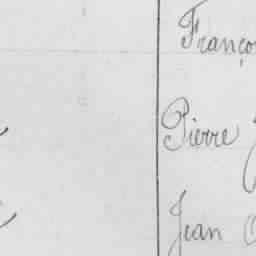 Franço
Pierre
Jean